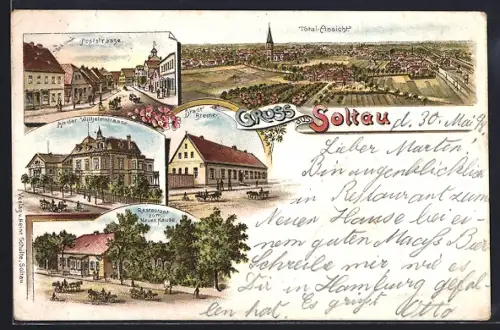 Poststrasse.
Total-Ansicht
An der Wilhelmstrasse
Gruss aus Soltau
Restaurant
zum
Neuen Hause
Verlag v. Heinr. Schulte, Soltau
d. 30. Mai
Lieber Martin!
Bin augenblicklich
in Restaurant zum
Neuen Hause bei ei-
nem guten Maass Bier
Schreibe mir wie es
Dir in Hamburg gefal-
len hat. Es grüßt Otto